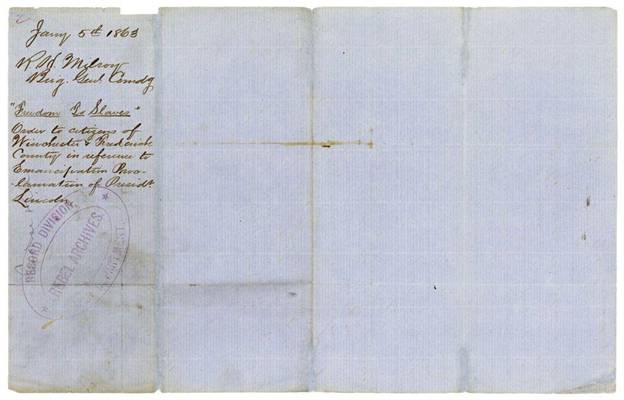 Jany 5th 1863
R. H. Milroy
Brig. Genl Comdg
"Freedom To Slaves"
Order to citizens of
Winchester & Frederick
County in reference to
Emancipation Proc-
lamation of Presidt
Lincoln
RECORD DIVISION
REBEL ARCHIVES
WAR DEPARTMENT